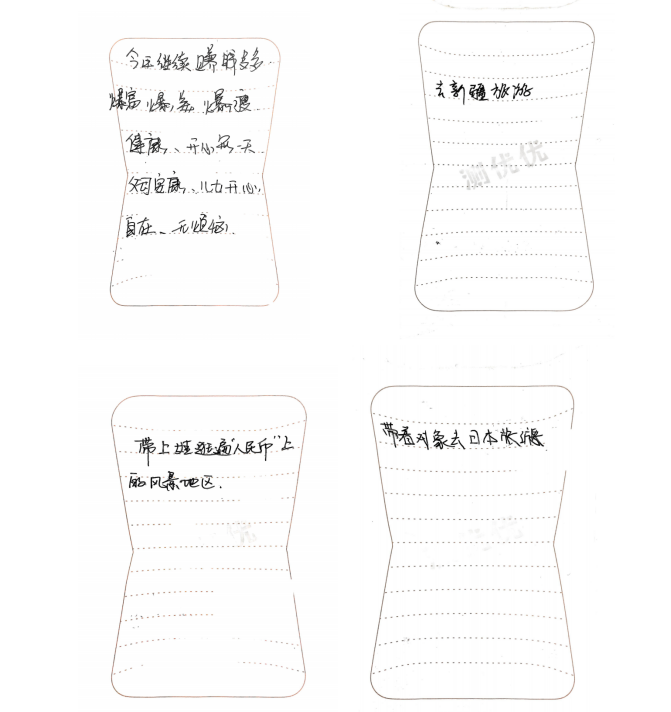 今年继续赚钱多多
爆富、爆美、爆瘦
健康、开心每一天
父母安康、儿女开心
自在、无烦恼.
去新疆旅游
测优优
带上娃逛遍“人民币”上
的风景地区.
带着对象去日本旅